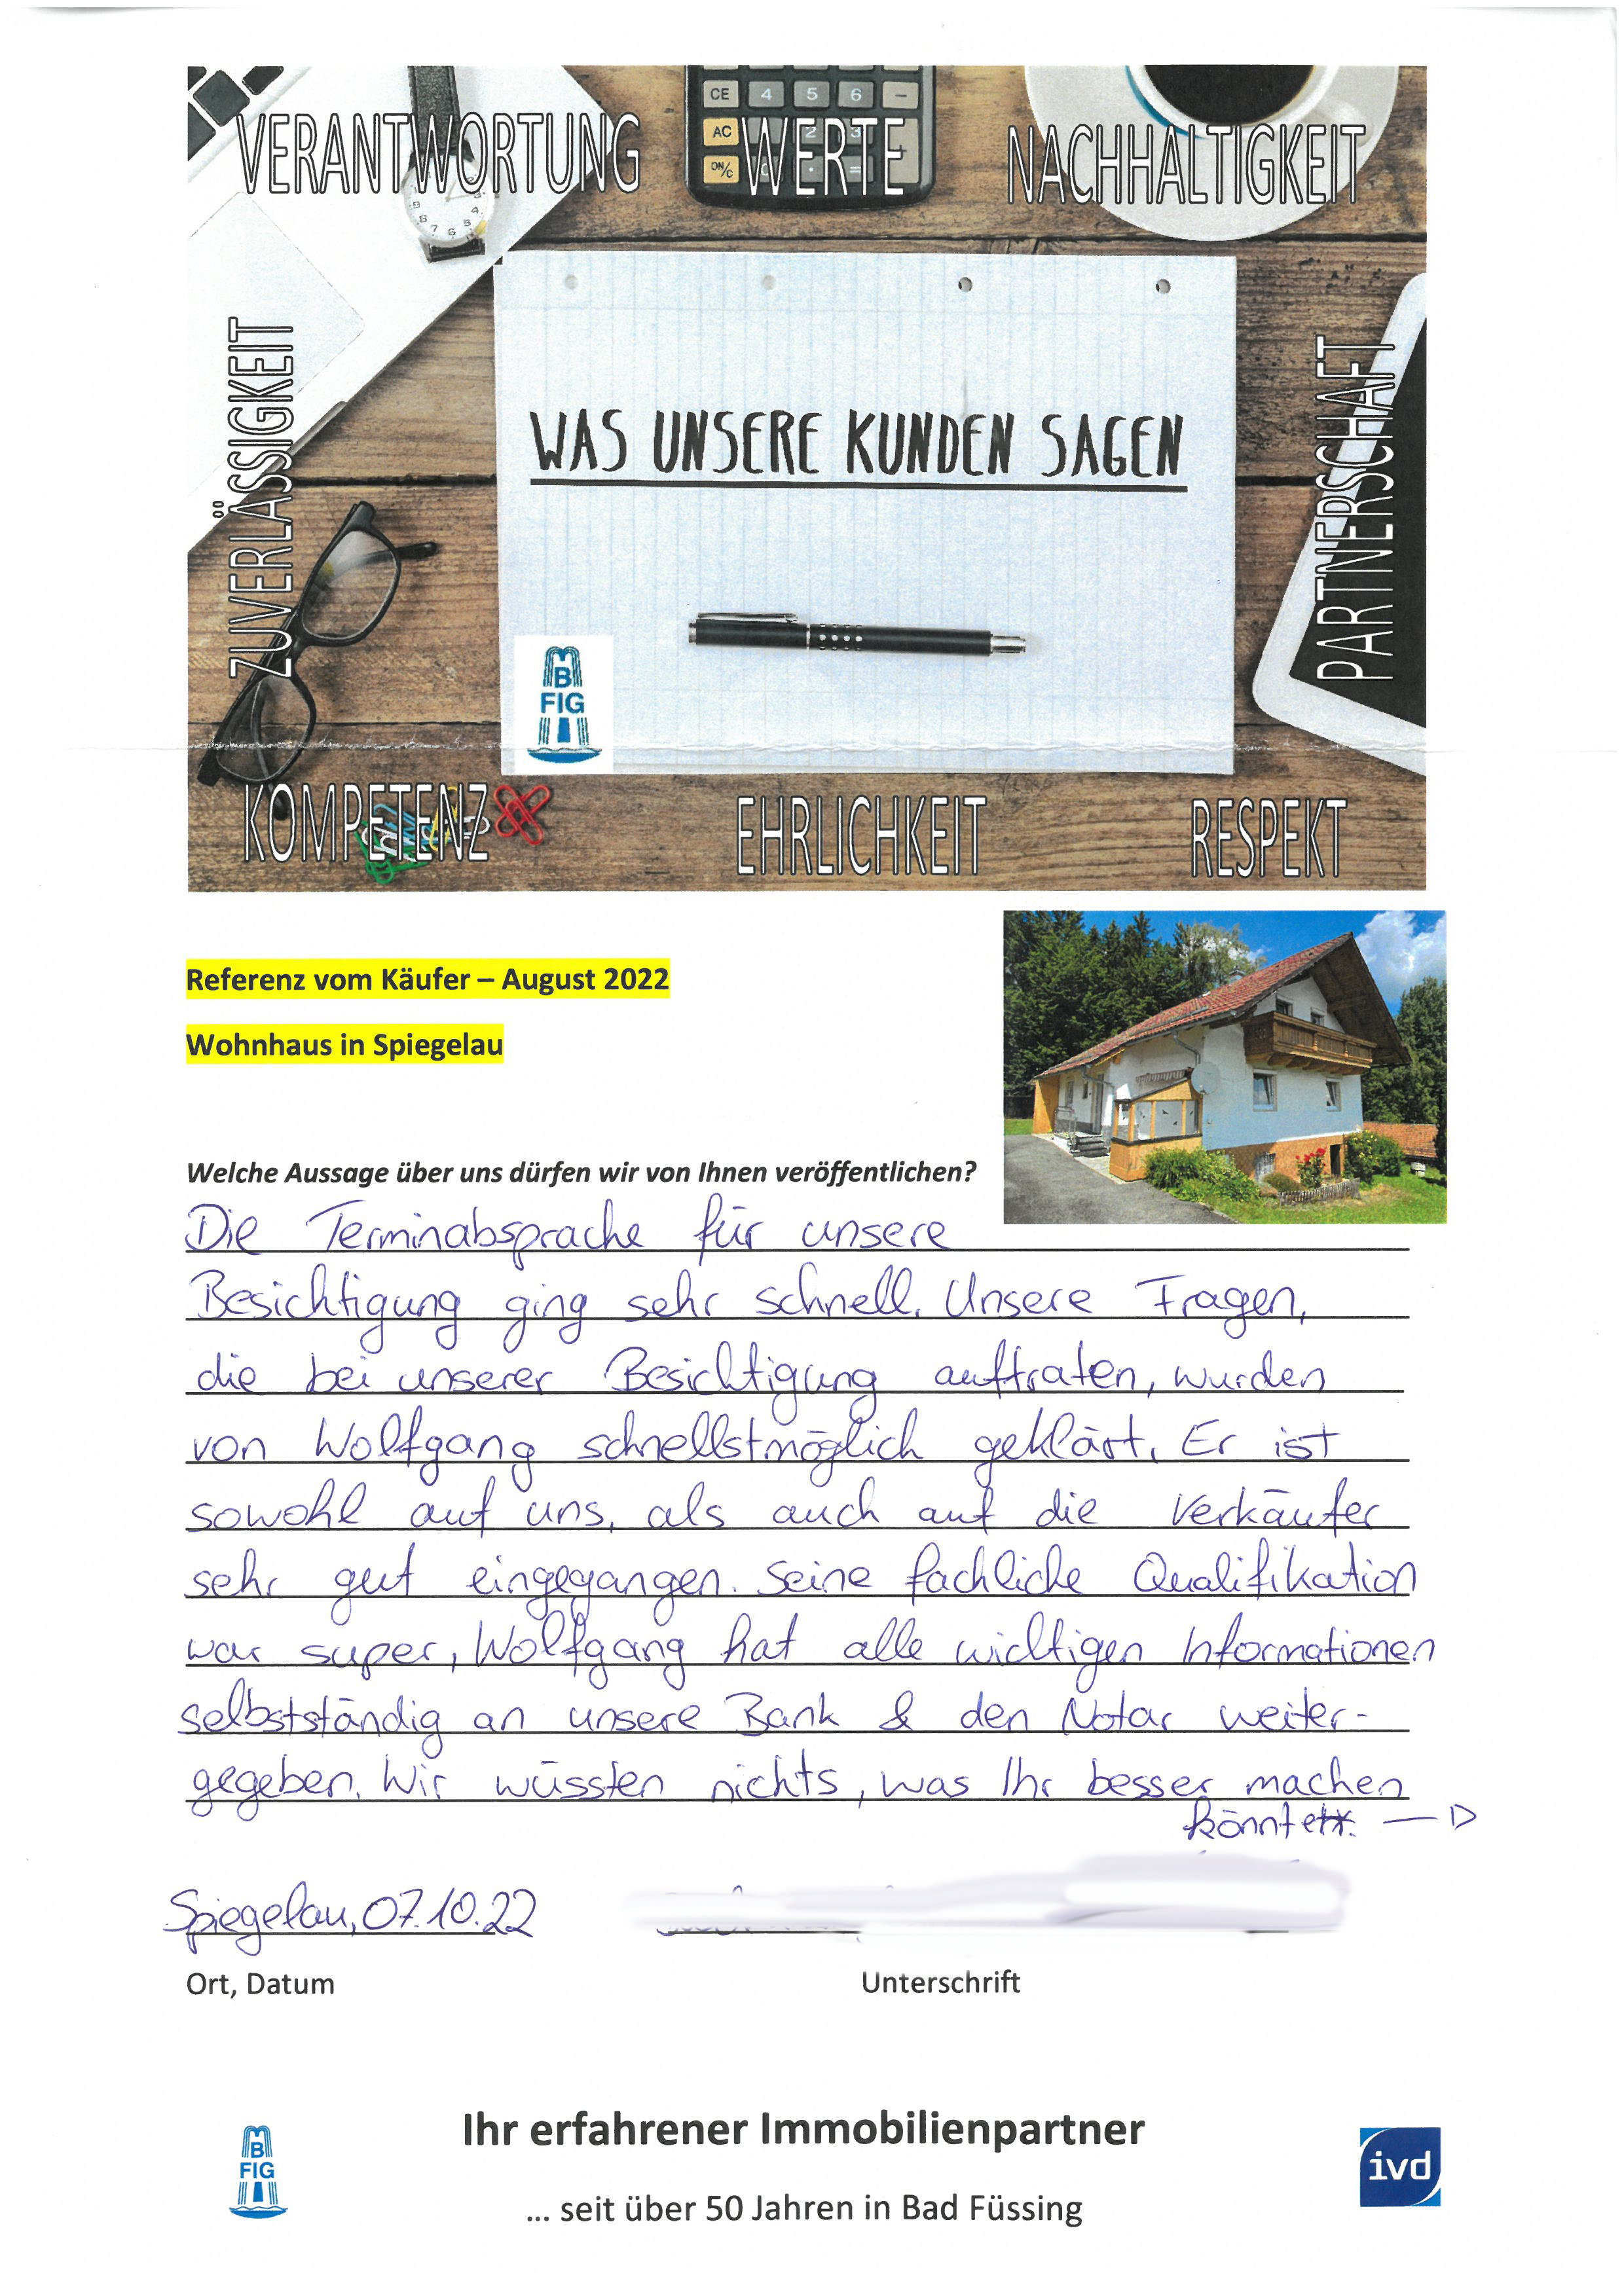 CE 4 5 6 –
AC 2 3 +
ON/C · =
VERANTWORTUNG WERTE NACHHALTIGKEIT
ZUVERLÄSSIGKEIT
PARTNERSCHAFT
WAS UNSERE KUNDEN SAGEN
B
FIG
KOMPETENZ EHRLICHKEIT RESPEKT
Referenz vom Käufer – August 2022
Wohnhaus in Spiegelau
Welche Aussage über uns dürfen wir von Ihnen veröffentlichen?
Die Terminabsprache für unsere
Besichtigung ging sehr schnell. Unsere Fragen,
die bei unserer Besichtigung auftraten, wurden
von Wolfgang schnellstmöglich geklärt. Er ist
sowohl auf uns, als auch auf die Verkäufer
sehr gut eingegangen. Seine fachliche Qualifikation
war super, Wolfgang hat alle wichtigen Informationen
selbstständig an unsere Bank & den Notar weiter-
gegeben. Wir wüssten nichts, was Ihr besser machen
könntet. →
Spiegelau, 07.10.22
Ort, Datum Unterschrift
B
FIG
Ihr erfahrener Immobilienpartner
... seit über 50 Jahren in Bad Füssing
ivd